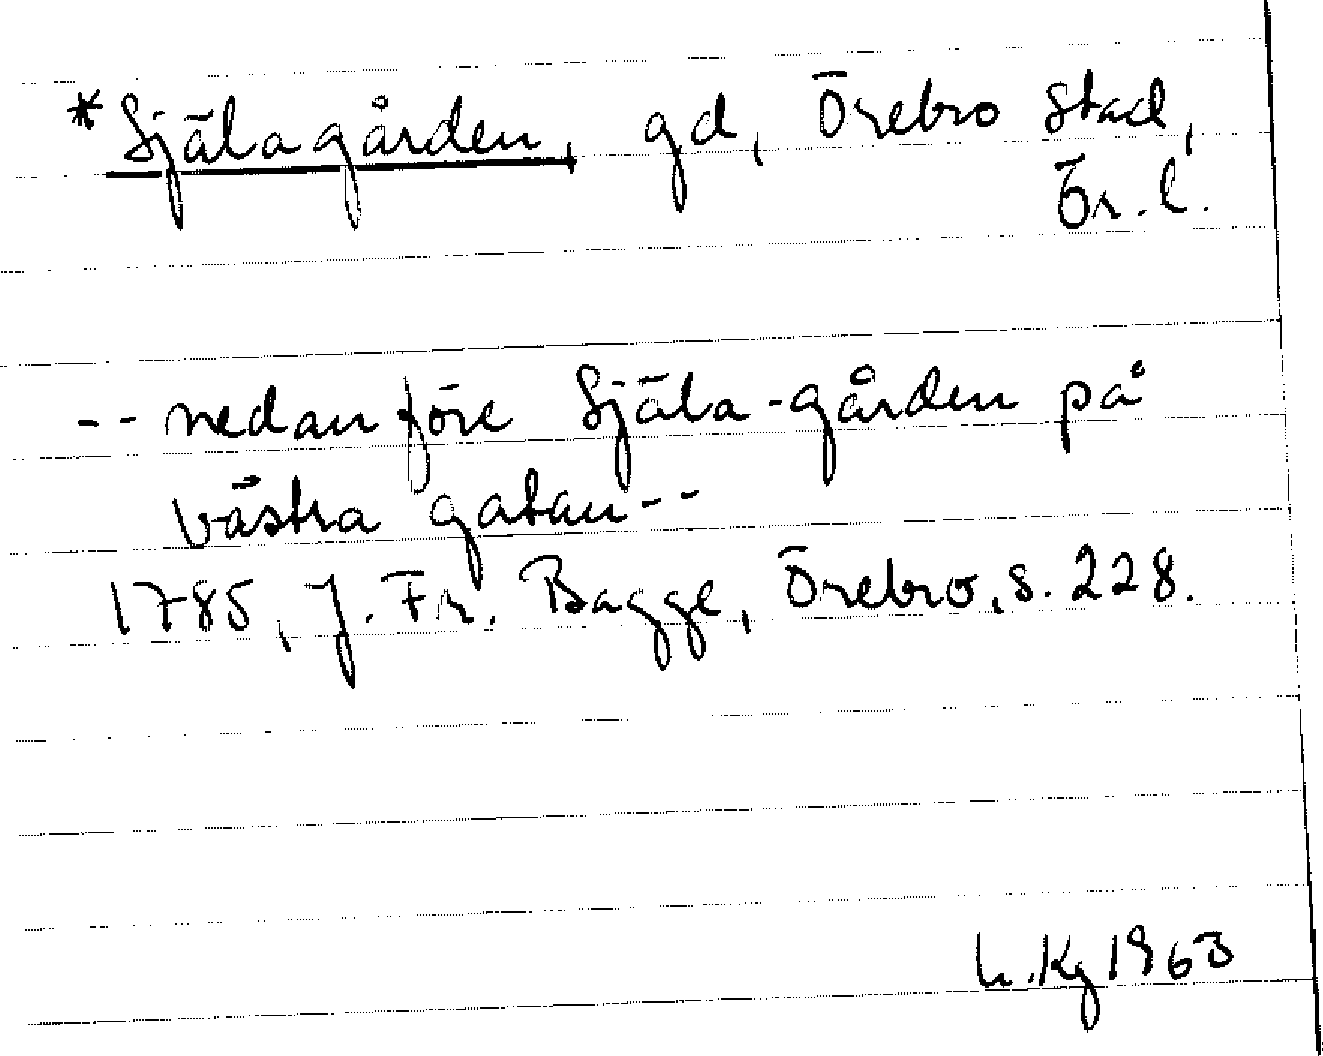 *Själagården, gd, Örebro stad,
Ör. l.
-- nedanföre Själa-gården på
västra gatan --
1785, J. Fr. Bagge, Örebro, s. 228.
h. Kg 1963